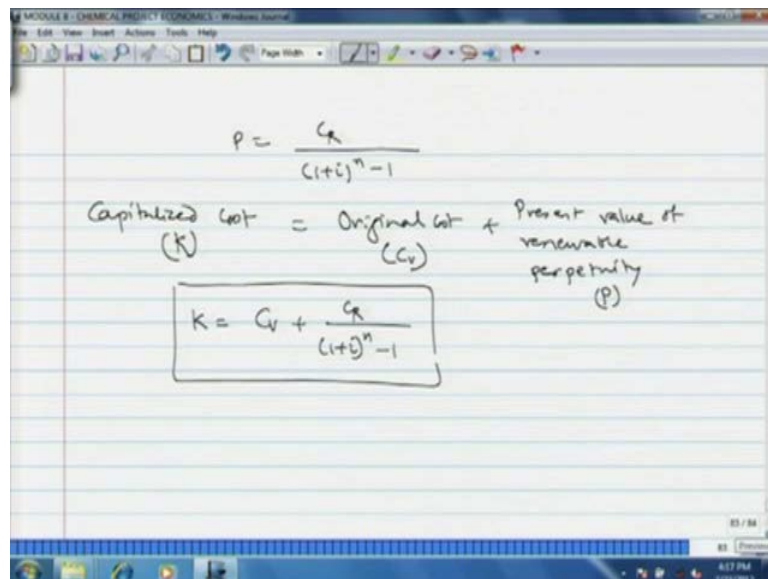 MODULE 8 - CHEMICAL PROJECT ECONOMICS - Windows Journal
File Edit View Insert Actions Tools Help
Page Width
P = C_R / ((1+i)^n - 1)
Capitalized cost = Original cost + Present value of
(K) (C_V) renewable
perpetuity
(P)
K = C_V + C_R / ((1+i)^n - 1)
83 / 84
83 Previous
4:17 PM